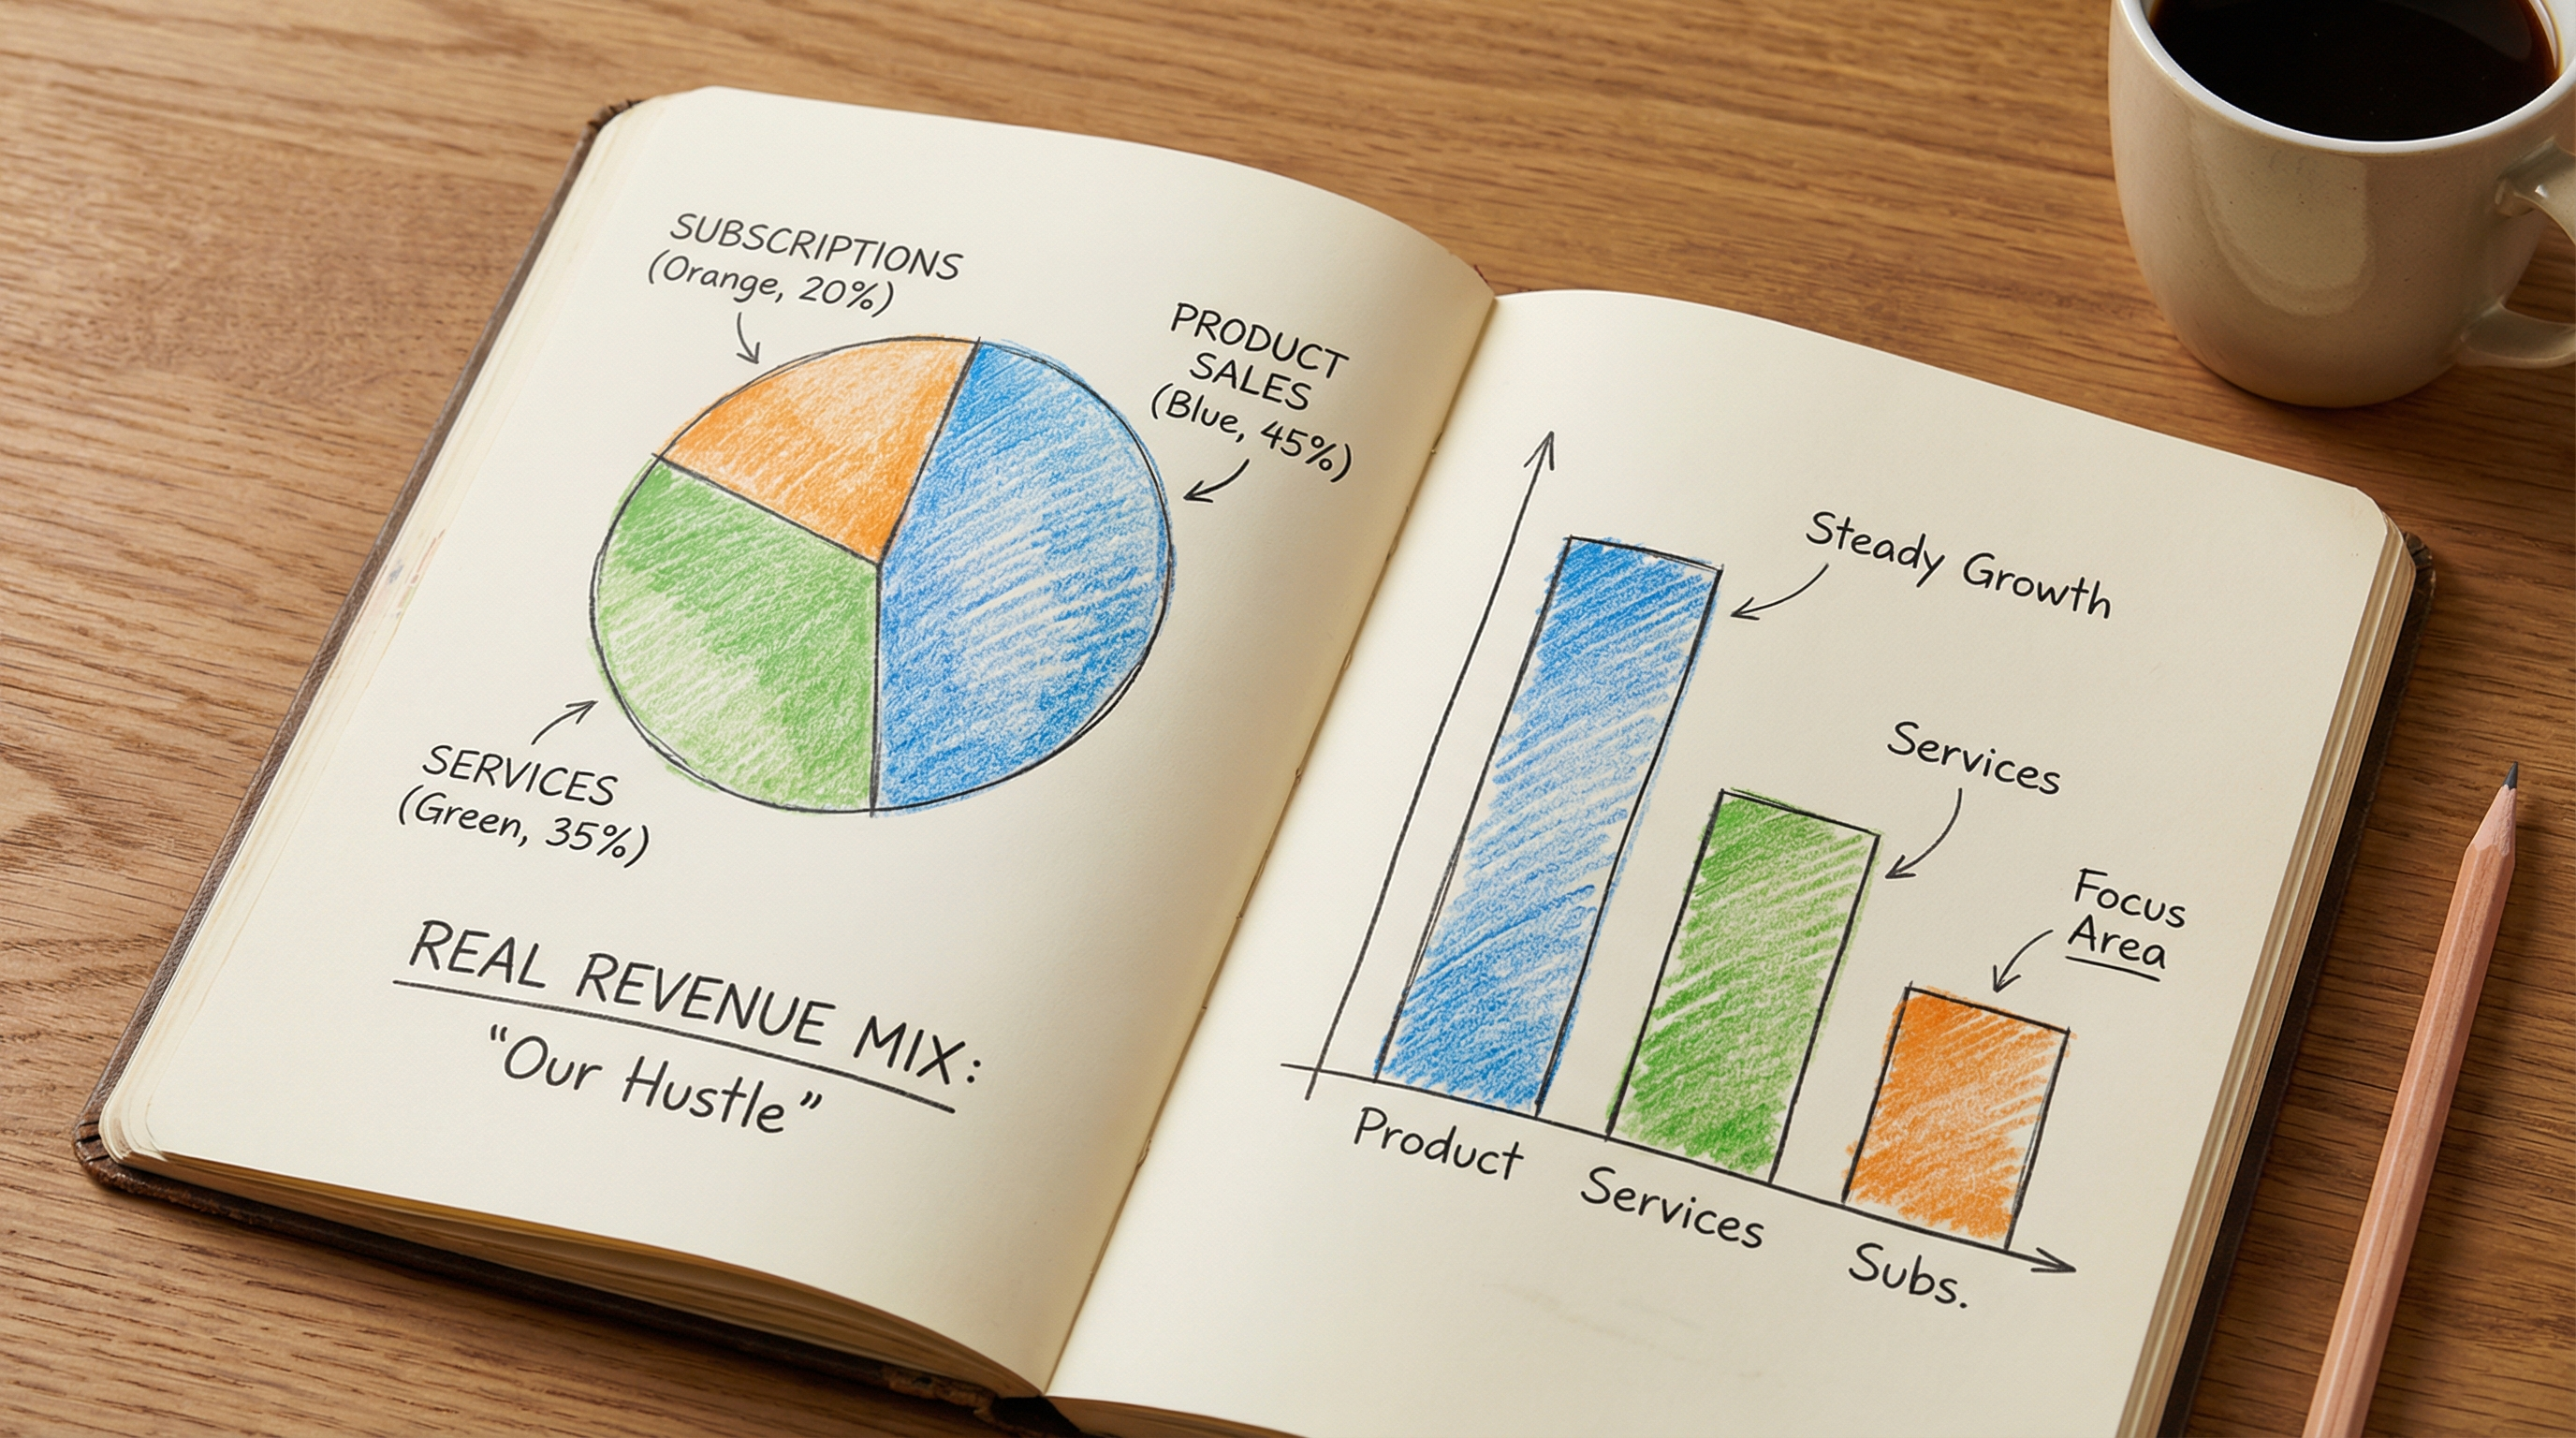 SUBSCRIPTIONS
(Orange, 20%)
PRODUCT
SALES
(Blue, 45%)
SERVICES
(Green, 35%)
REAL REVENUE MIX:
“Our Hustle”
Steady Growth
Services
Focus
Area
Product
Services
Subs.